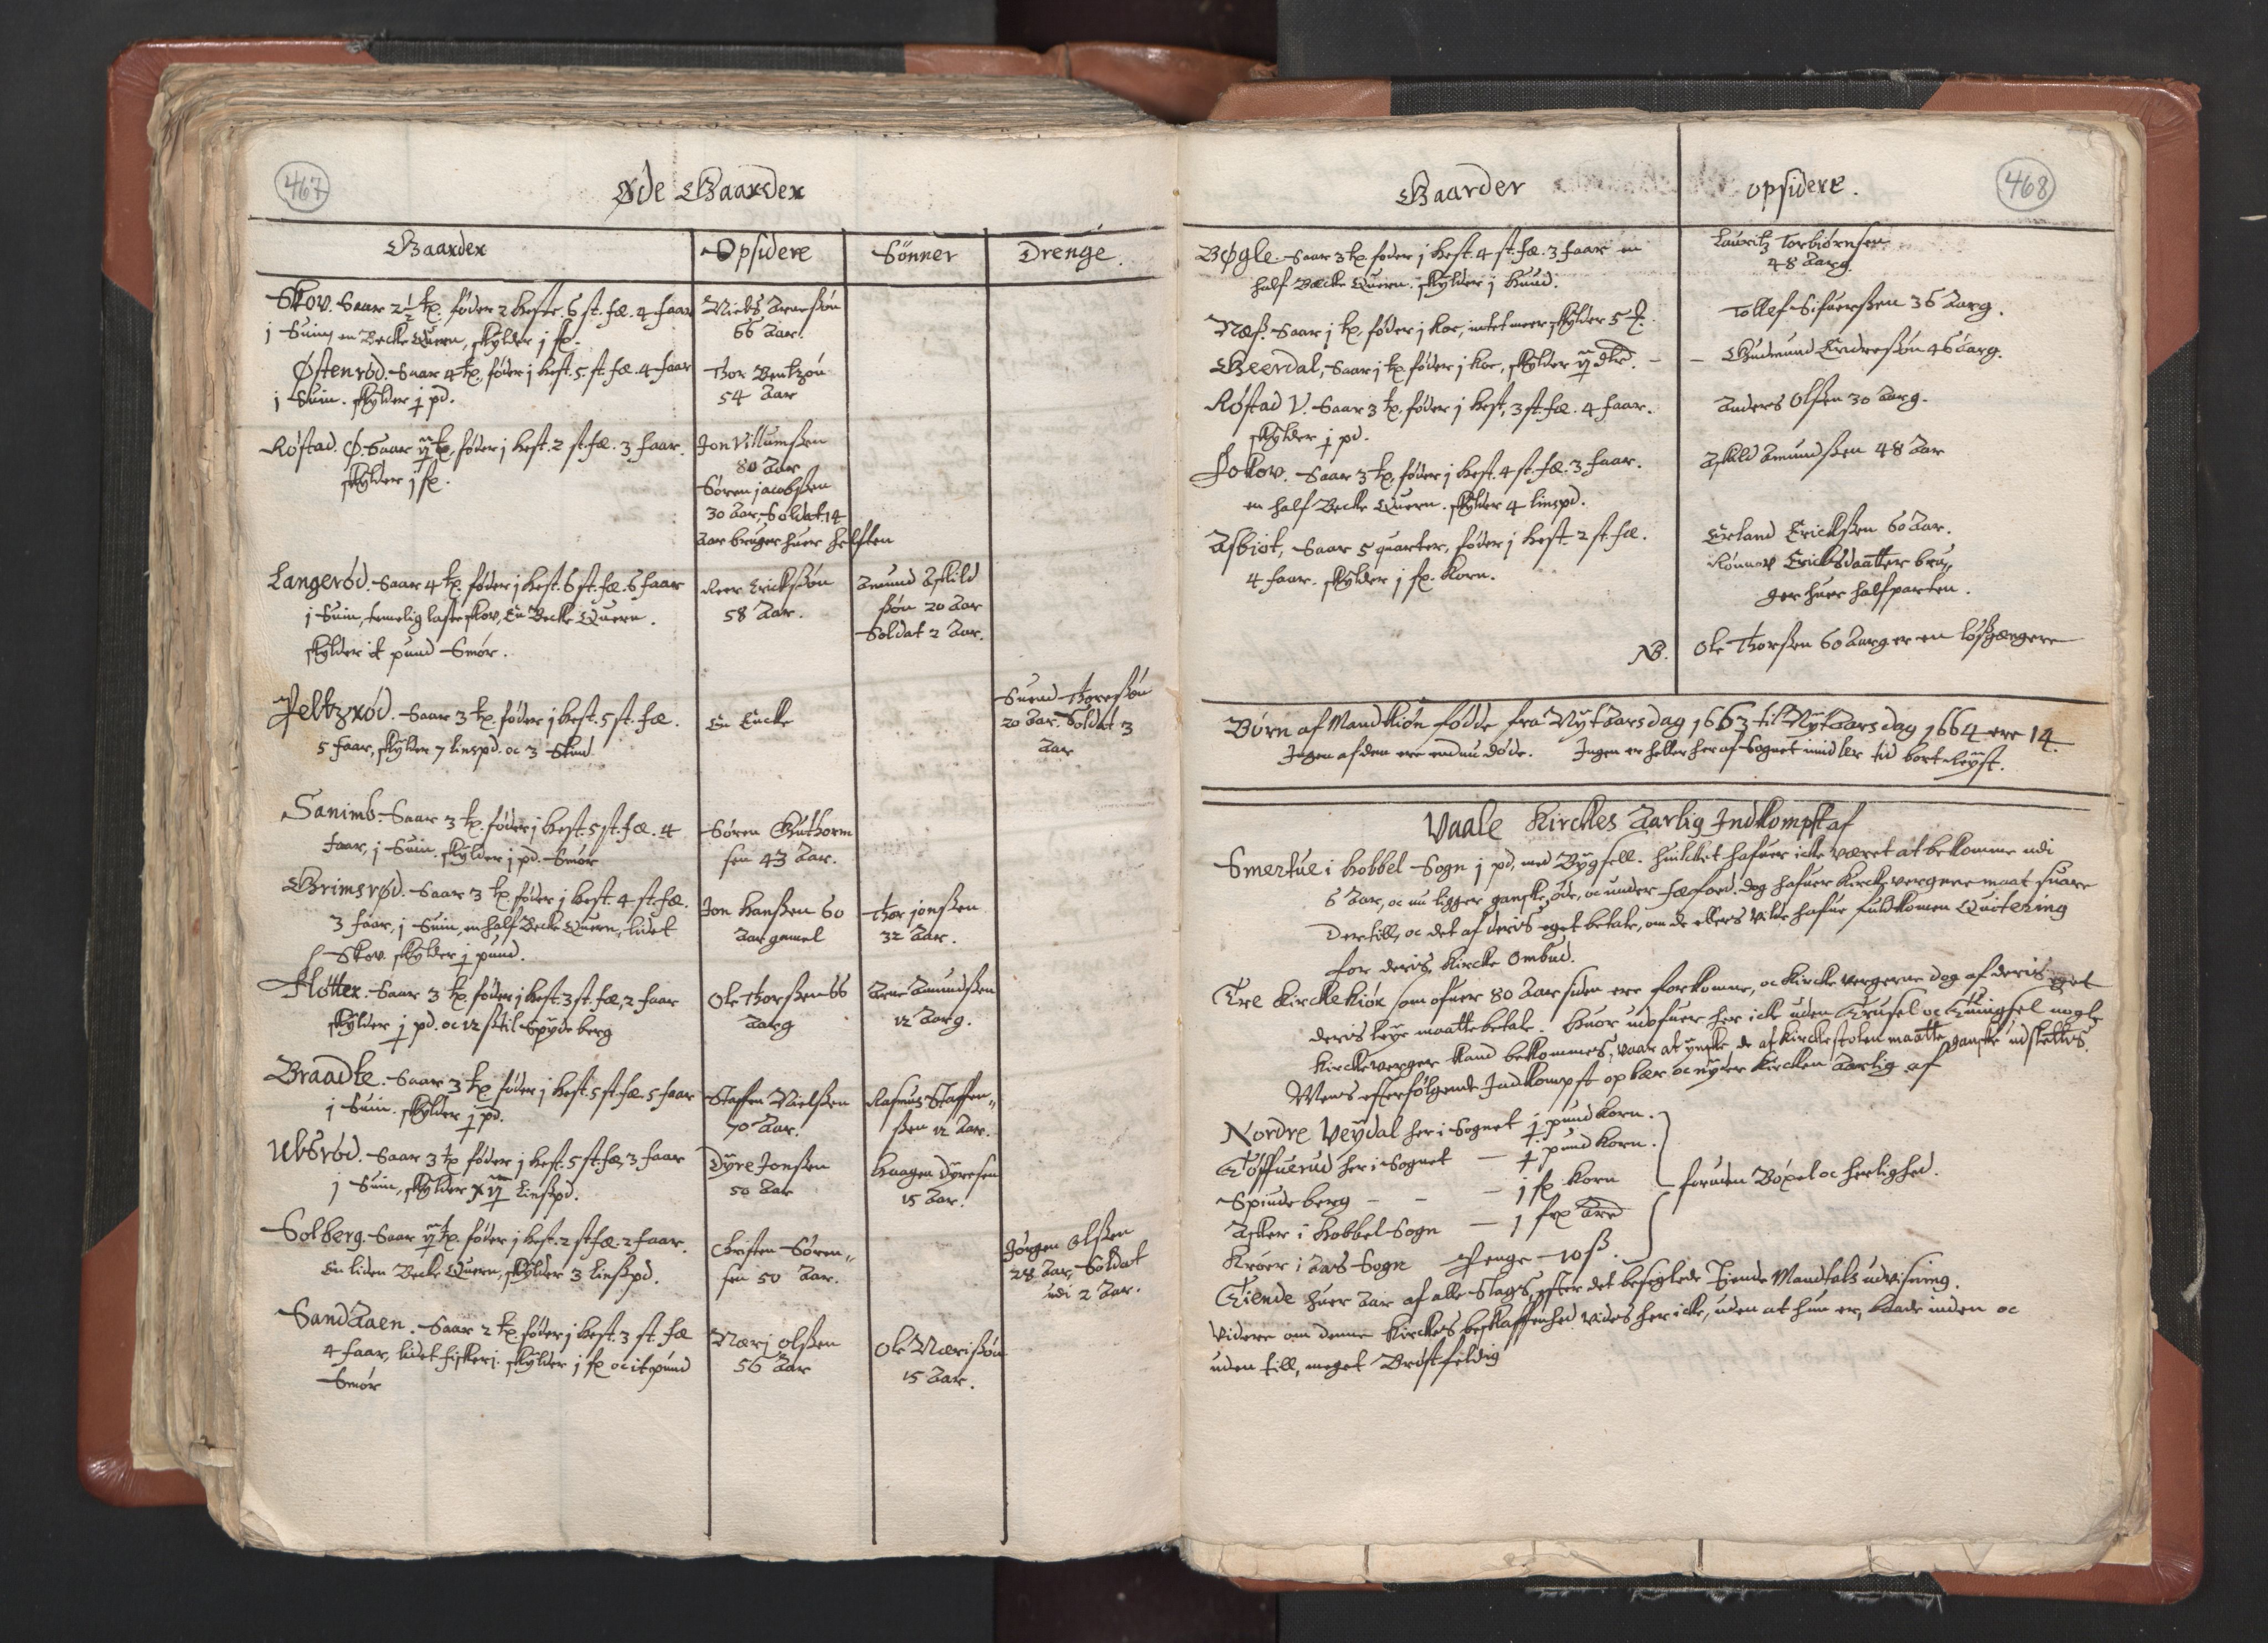 467
Øde Gaarder
Gaarder
Opsidere
Sønner
Drenge.
Skov. Saar 2½ tp. føder 2 heste. 6 st. fæ. 4 faar
j Suin, en Becke Quern, skylder j fx.
Niels Arnessøn
66 Aar.
Østenrød. Saar 4 tp. føder j hest. 5. st. fæ. 4 faar
j Suin. skylder j pd.
Thor Bentzøn
54 Aar
Røstad. Ø. Saar ij tp. føder j hest. 2 st. fæ. 3 faar.
skylder j fx.
Jon Villumssen
80 Aar
Søren jacobssen
30 Aar, Soldat. 14
Aar bruger huer helften
Langerød. Saar 4 tp. føder j hest. 6 st. fæ. 6 faar
j Suin, temelig laste skov, En Becke Quern.
skylder it pund Smør.
Reer Erickssøn
58 Aar.
Amund Askild
søn 20 Aar
Soldat 2 Aar.
Peltzrød. Saar 3 tp. føder j hest. 5 st. fæ.
5 faar, skylder 7 linspd. oc 3 skind
En Encke
Suend Thoressøn
20 Aar. Soldat 3
Aar
Sanimb. Saar 3 tp. føder j hest. 5 st. fæ. 4
faar, j Suin. skylder j pd. Smør
Søren Guthorm
sen 43 Aar.
Grimsrød. Saar 3 tp føder j hest. 4 st. fæ.
3 faar, j Suin, en half Becke Quern, lidet
Skov. skylder j pund.
Jon Hanssen 60
Aar gamel
Thor jonssen
32 Aar.
Flotter. Saar 3 tp. føder j hest. 3 st. fæ, 2 faar
skylder j pd. oc 12 ß til Spydeberg
Ole Thorssen 66
Aarg
Arne Amundssen
12 Aarg.
Braadte. Saar 3 tp føder j hest. 5 st. fæ. 5 faar
j Suin. skylder j pd.
Staffen Nielssen
70 Aar.
Rasmus Staffen„
ssen 12 Aar.
Ulsrød. Saar 3 tp føder j hest. 5 st. fæ, 3 faar
j Suin, skylder xij linsspd.
Dyre Jonssen
50 Aar
Haagen Dyresen
15 Aar.
Solberg. Saar ij tp. føder j hest. 2 st fæ. 2 faar.
En liden Becke Quern, skylder 3 linsspd.
Christen Søren„
sen 50 Aar.
Jørgen Olssen
28 Aar, Soldat
udi 2 Aar.
SandAaen. Saar 2 tp. føder j hest. 3 st. fæ
4 faar, lidet fiskeri. skylder j fx oc it pund
Smør
Næri Olssen
56 Aar
Ole Nærissøn
15 Aar.
468
Gaarder
opsidere.
Bøgle. Saar 3 tp. føder j hest. 4 st. fæ. 3 faar en
half Becke Quern. skylder j hund.
Lauritz Torbiørnsen
48 Aarg.
Næss. Saar j tp. føder j koe, intet meer skylder 5
Tollef Sifuerssen 36 Aarg.
Geerdal, Saar j tp. føder j koe, skylder ij
Gudmund Endressøn 46 Aarg.
Røstad V. Saar 3 tp. føder j hest, 3 st. fæ. 4 faar.
skylder j pd.
Anders Olsen 30 Aarg.
Fokov. Saar 3 tp, føder j hest. 4 st. fæ. 3 faar.
en half Becke Quern. skylder 4 linspd.
Askild Amundssen 48 Aar
Asbiøt, Saar 5 quarter, føder j hest. 2 st. fæ.
4 faar. skylder j fx. korn.
Erland Erickssen 60 Aar.
Rønnov Ericksdaatter bru„
ger huer halfparten.
NB. Ole Thorssen 60 Aarg er en løssgengere
Børn af Mandkiøn fødde fra NytAarsdag 1663 til NytAarsdag 1664 ere 14.
Ingen af dem ere endnu døde. Ingen er heller her af Sognet imidler tid bort leyst.
Vaale Kirckes Aarlig Indkompst af
Smertue i hobbel Sogn j pd, med Bygsell. huilcket hafuer icke været at bekomme udi
6 Aar, oc nu ligger ganske øde, oc under fæfoed. dog hafuer Kirckevergene maat suare
Dertill, oc det af deris eget betale, om de ellers vilde hafue fuldkomen Quitering
for deris Kircke Ombud.
Tre Kirckekiør som ofuer 80 Aar siden ere forkomne, oc Kirckevergerne dog af deris eget
deris leye maatte betale. Huor udofuer her icke uden Trusel oc Tuingsel nogle
Kirckeverger kand bekommes, vaar at ynske de af kirckestolen maatte ganske udslettes.
Mens efterfølgende Indkompst opbær oc nyder Kircken Aarlig af
Nordre Veydal her i Sognet j pund korn.
Toffuerud her i Sognet — j pund korn.
Spiudeberg - - — j fx korn
Asker i hobbel Sogn — j fx
Krøer i Aas Sogn Penge — 10 ß.
foruden Bøxel oc herlighed.
Tiende huer Aar af alle Slags, efter det beseglede Tiende Mandtals udvisning.
Videre om denne Kirckes beskaffenhed vides her icke, uden at hun er, baade inden oc
uden till, meget Brøstfeldig